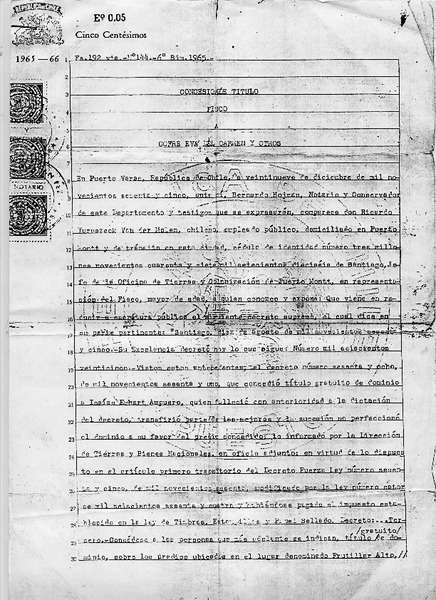 Eº 0.05
Cinco Centésimos
1965—66
Fs.192 vta.-Nº144.-6º Bim.1965.-
CONCESION DE TITULO
FISCO
A
COFRE EVA DEL CARMEN Y OTROS
NOTARIO
En Puerto Varas, República de Chile, a veintinueve de diciembre de mil no-
vecientos sesenta y cinco, ante mí, Bernardo Notario y Conservador
de este Departamento y testigos que se expresarán, comparece don Ricardo
Van der Molen, chileno, empleado público, domiciliado en Puerto
Montt y de tránsito en esta ciudad, cédula de identidad número tres millo-
nes novecientos cuarenta y siete mil setecientos dieciséis de Santiago, Je-
fe de la Oficina de Tierras y Colonización de Puerto Montt, en representa-
ción del Fisco, mayor de edad, a quien conozco y expone: Que viene en re-
ducir a escritura pública el siguiente decreto supremo, el cual dice en
su parte pertinente: "Santiago, diez de agosto de mil novecientos sesenta
y cinco.-Su Excelencia decretó hoy lo que sigue: Número mil seiscientos
veinticinco.-Vistos estos antecedentes; el decreto número sesenta y ocho,
de mil novecientos sesenta y uno, que concedió título gratuito de dominio
a Eckart Ampuero, quien falleció con anterioridad a la dictación
del decreto, transfirió parte de las mejoras y la sucesión no perfeccionó
el dominio a su favor del predio concedido; lo informado por la Dirección
de Tierras y Bienes Nacionales, en oficio adjunto; en virtud de lo dispues
to en el artículo primero transitorio del Decreto Fuerza Ley número sesen-
ta y cinco, de mil novecientos sesenta, modificado por la ley número cator
ce mil seiscientos sesenta y cuatro y habiéndose pagado el impuesto esta-
blecido en la ley de Timbres, Estampillas y Papel Sellado. Decreto:...Ter-
/gratuito/
cero.-Concédese a las personas que más adelante se indican, título de do-
minio, sobre los predios ubicados en el lugar denominado Frutillar Alto,//